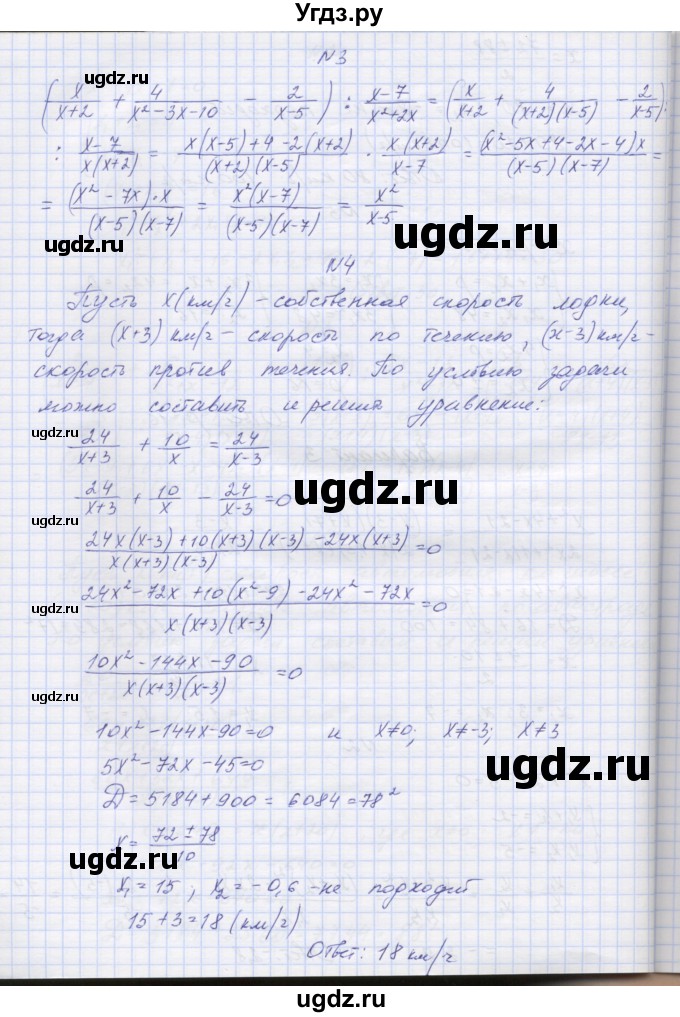 Угдз.ру
№3
(x/(x+2) + 4/(x²-3x-10) - 2/(x-5)) : (x-7)/(x²+2x) = (x/(x+2) + 4/((x+2)(x-5)) - 2/(x-5)) :
: (x-7)/(x(x+2)) = (x(x-5)+4-2(x+2))/((x+2)(x-5)) · (x(x+2))/(x-7) = ((x²-5x+4-2x-4)x)/((x-5)(x-7)) =
= ((x²-7x)·x)/((x-5)(x-7)) = (x²(x-7))/((x-5)(x-7)) = x²/(x-5)
ugdz.ru
ugdz.ru
№4
Пусть x(км/г) - собственная скорость лодки,
тогда (x+3) км/г - скорость по течению, (x-3) км/г -
скорость против течения. По условию задачи
можно составить и решить уравнение:
ugdz.ru
24/(x+3) + 10/x = 24/(x-3)
24/(x+3) + 10/x - 24/(x-3) = 0
ugdz.ru
(24x(x-3)+10(x+3)(x-3)-24x(x+3))/(x(x+3)(x-3)) = 0
(24x²-72x+10(x²-9)-24x²-72x)/(x(x+3)(x-3)) = 0
ugdz.ru
(10x²-144x-90)/(x(x+3)(x-3)) = 0
ugdz.ru
10x²-144x-90=0 и x≠0; x≠-3; x≠3
5x²-72x-45=0
ugdz.ru
D=5184+900=6084=78²
x=(72±78)/10
ugdz.ru
x₁=15; x₂=-0,6 - не подходит
15+3=18(км/г)
Ответ: 18 км/г
ugdz.ru
ugdz.ru